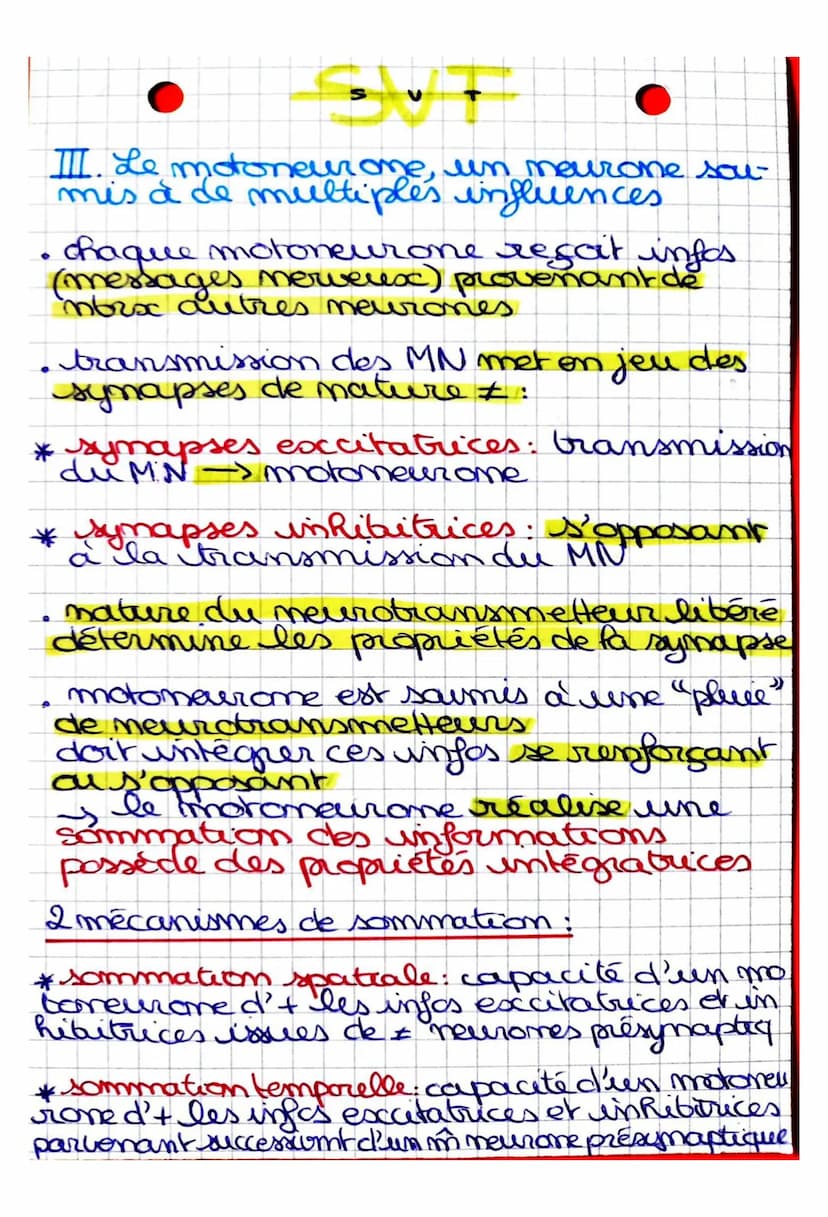 SVT
S V T
III. Le motoneurone, un neurone sou-
mis à de multiples influences
. chaque motoneurone reçoit infos
(messages nerveux) provenant de
nbrx autres neurones
. transmission des MN met en jeu des
synapses de nature ≠ :
* synapses excitatrices : transmission
du MN → motoneurone
* synapses inhibitrices : s'opposant
à la transmission du MN
. nature du neurotransmetteur libéré
détermine les propriétés de la synapse
. motoneurone est soumis à une "pluie"
de neurotransmetteurs
doit intégrer ces infos se renforçant
ou s'opposant
→ le motoneurone réalise une
sommation des informations
possède des propriétés intégratrices
2 mécanismes de sommation :
* sommation spatiale : capacité d'un mo
toneurone d'+ les infos excitatrices et in
hibitrices issues de ≠ neurones présynaptiq
* sommation temporelle : capacité d'un motoneu
rone d'+ les infos excitatrices et inhibitrices
parvenant successivmt d'un m̂ neurone présynaptique